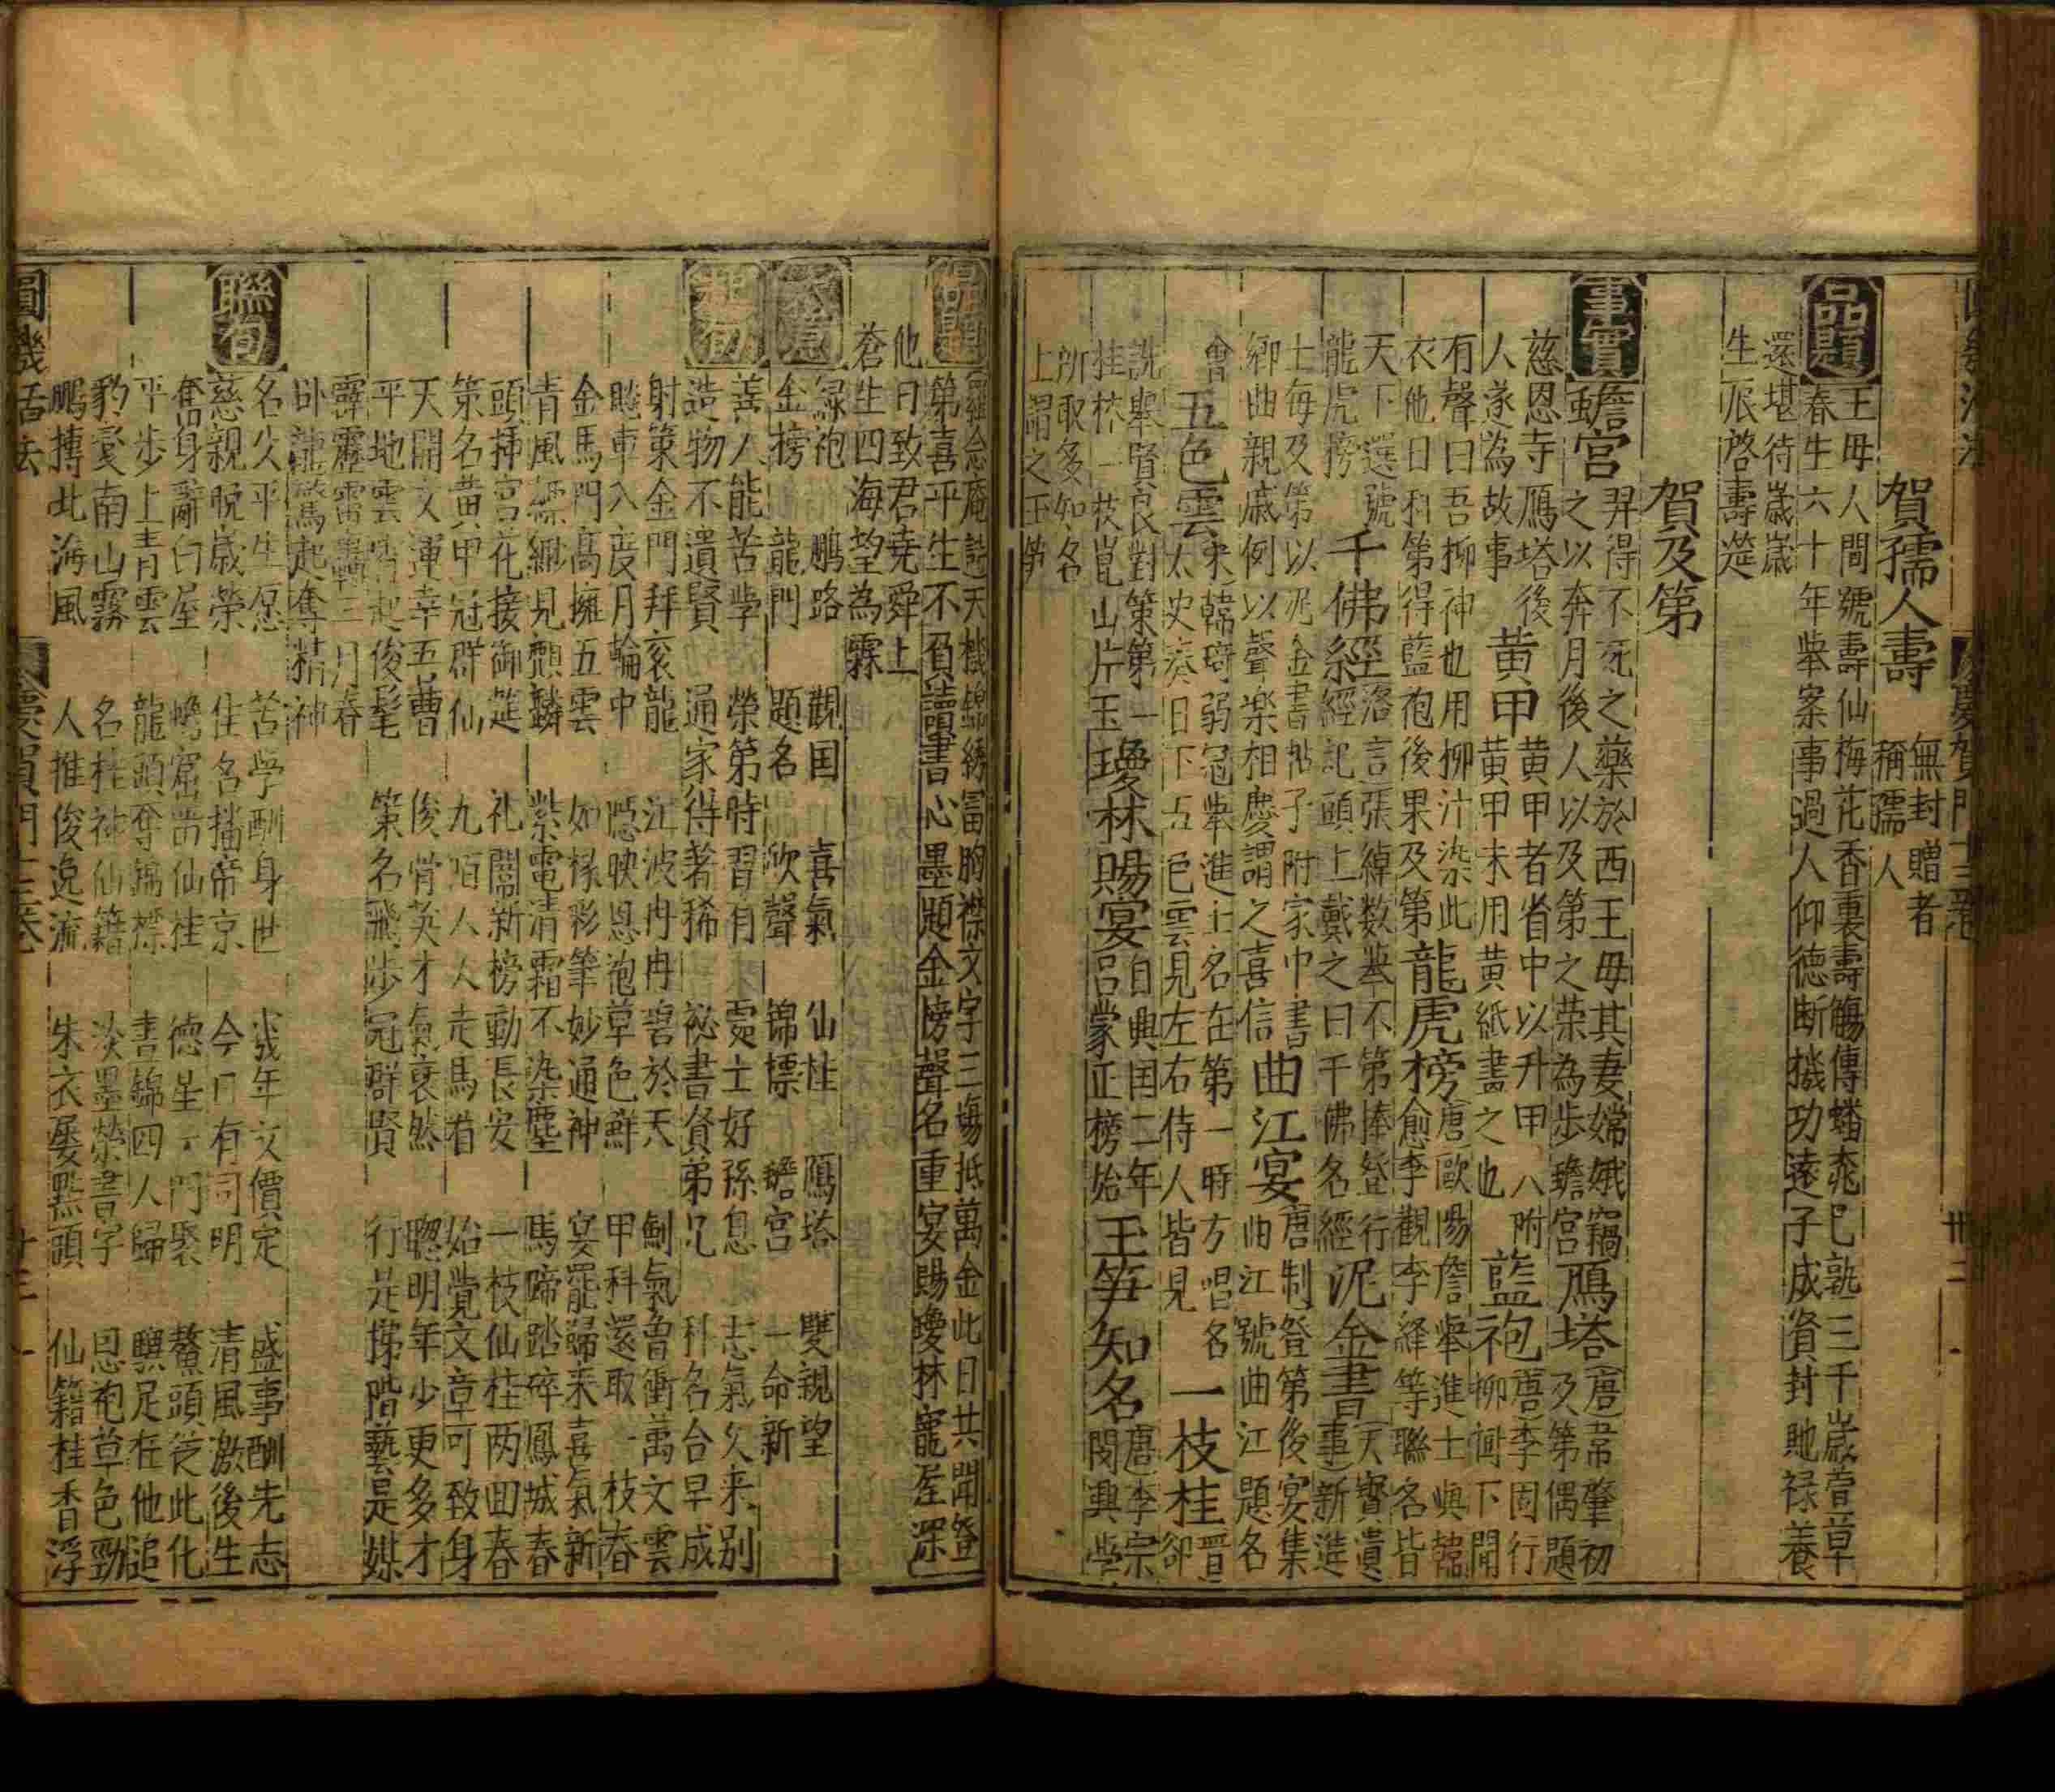 慶賀門十三卷
卅二
賀孺人壽
無封贈者
稱孺人
品題
王母人間號壽仙梅花香裏壽觴傳蟠桃已熟三千歲萱草
春生六十年舉案事過人仰德断機功遠子成資封貤禄養
還堪待歲歲
生辰啓壽筵
賀及第
事實
蟾宮
羿得不死之藥於西王母其妻嫦娥竊
之以奔月後人以及第之荣為步蟾宮
鴈塔
唐韋肇初
及第偶題
慈恩寺鴈塔後
人遂為故事
黄甲
黄甲者省中以升甲八附
黄甲未用黄紙書之也
藍袍
唐李固行
柳樹下聞
有聲曰吾柳神也用柳汁染此
衣他日科第得藍袍後果及第
龍虎榜
唐歐陽詹舉進士與韓
愈李觀李絳等聯名皆
天下選號
龍虎榜
千佛經
落言張綽数舉不第捧登行
經記頭上戴之曰千佛名經
泥金書
天寶遺
事新進
士每及第以泥金書帖子附家中書
鄉曲親戚例以聲樂相慶謂之喜信
曲江宴
唐制登第後宴集
曲江號曲江題名
會
五色雲
宋韓琦弱冠舉進士名在第一時方唱名
太史奏日下五色雲見左右侍人皆見
一枝桂
晋郤
詵舉賢良對策第一
桂林一枝崑山片玉
瓊林賜宴
自興国二年
吕蒙正榜始
玉笋知名
唐李宗
閔典學
所取多知名
上謂之玉笋
品題
天機錦綉冨胸襟文字三塲抵萬金此日共聞登
第喜平生不負讀書心墨題金榜聲名重宴賜瓊林寵渥深
他日致君堯舜上
蒼生四海望為霖
緑袍 鵬路 觀国 喜氣 仙桂 鴈塔 雙親望
金榜 龍門 題名 欣聲 锦標 蟾宮 一命新
起句
善人能苦學 榮第時習有 處士好孫息 志氣久来别
造物不遺賢 通家得著稀 祕書賢弟兄 科名台早成
射策金門拜衮龍 江波冉冉碧於天 劍氣曾衝萬丈雲
飈車入度月輪中 隱映恩袍草色鮮 甲科還取一枝春
金馬門高擁五雲 如椽彩筆妙通神 宴罷歸来喜氣新
青風縹緲見麒麟 紫電清霜不染塵 馬蹄踏碎鳳城春
頭揷宮花接御筵 礼闈新榜動長安 一枝仙桂两回春
策名黄甲冠群仙 九陌人人走馬看 始覺文章可致身
天開文運幸五曹 俊骨英才氣衮然 聰明年少更多才
平地雲霄起俊髦 策名飛步冠群賢 行是揀階藝是媒
霹靂雷轟三月春
卧龍驚起奪精神
聯句
名久平生愿 苦学酬身世 幾年文價定 盛事酬先志
慈親脱歲榮 佳名播帝京 今日有司明 清風激後生
奮身辭白屋 蟾窟甞仙桂 德星一門聚 鰲頭從此化
平步上青雲 龍頭奪錦標 晝錦四人歸 驥足在他追
豹变南山霧 名桂神仙籍 淡墨榮書字 恩袍草色勁
鵬搏北海風 人推俊逸流 朱衣屡點頭 仙籍桂香浮
圓機活法
慶賀門十三卷